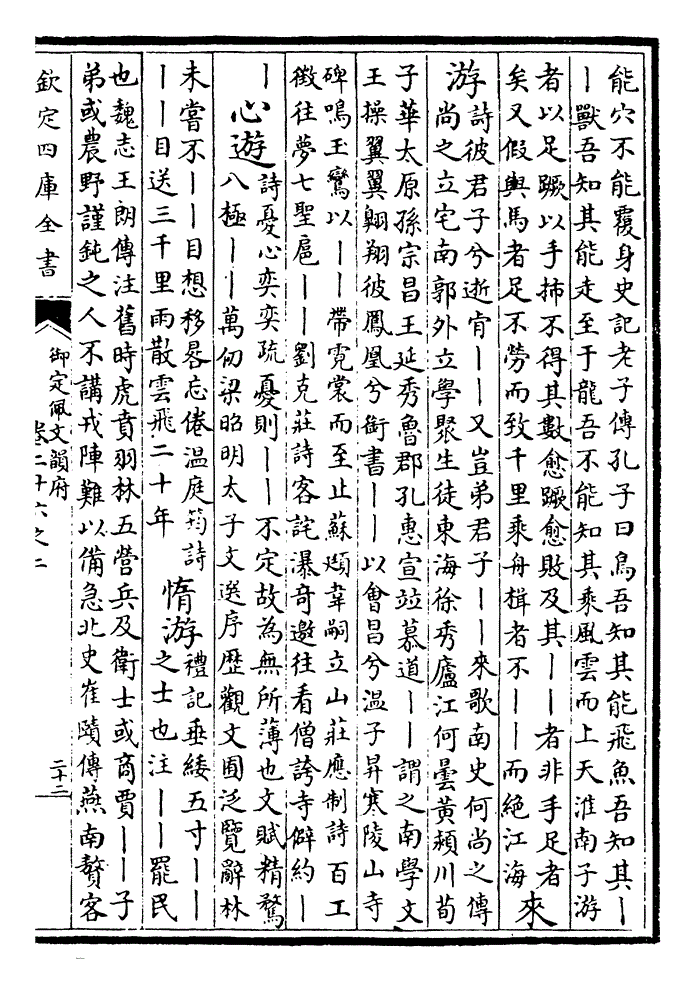 能穴不能覆身史記老子傳孔子曰鳥吾知其能飛魚吾知其丨
丨獸吾知其能走至于龍吾不能知其乘風雲而上天淮南子游
者以足蹶以手抪不得其數愈蹶愈敗及其丨丨者非手足者
矣又假輿馬者足不勞而致千里乘舟楫者不丨丨而絶江海
來
游
詩彼君子兮逝肯丨丨又豈弟君子丨丨來歌南史何尚之傳
尚之立宅南郭外立學聚生徒東海徐秀廬江何曇黄潁川荀
子華太原孫宗昌王延秀魯郡孔惠宣竝慕道丨丨謂之南學文
王操翼翼翺翔彼鳳凰兮銜書丨丨以會昌兮温子昇寒陵山寺
碑鳴玉鸞以丨丨帶霓裳而至止蘇頲韋嗣立山莊應制詩百工
徵往夢七聖扈丨丨劉克莊詩客詫瀑奇邀往看僧誇寺僻約丨
丨
心遊
詩憂心奕奕疏憂則丨丨不定故為無所薄也文賦精騖
八極丨丨萬仞梁昭明太子文選序歴觀文囿泛覽辭林
未嘗不丨丨目想移晷忘倦温庭筠詩
丨丨目送三千里雨散雲飛二十年
惰游
禮記垂緌五寸丨丨
之士也注丨丨罷民
也魏志王朗傳注舊時虎賁羽林五營兵及衛士或商賈丨丨子
弟或農野謹鈍之人不講戎陣難以備急北史崔賾傳燕南贅客
欽定四庫全書
御定佩文韻府
卷二十六之二
二十二